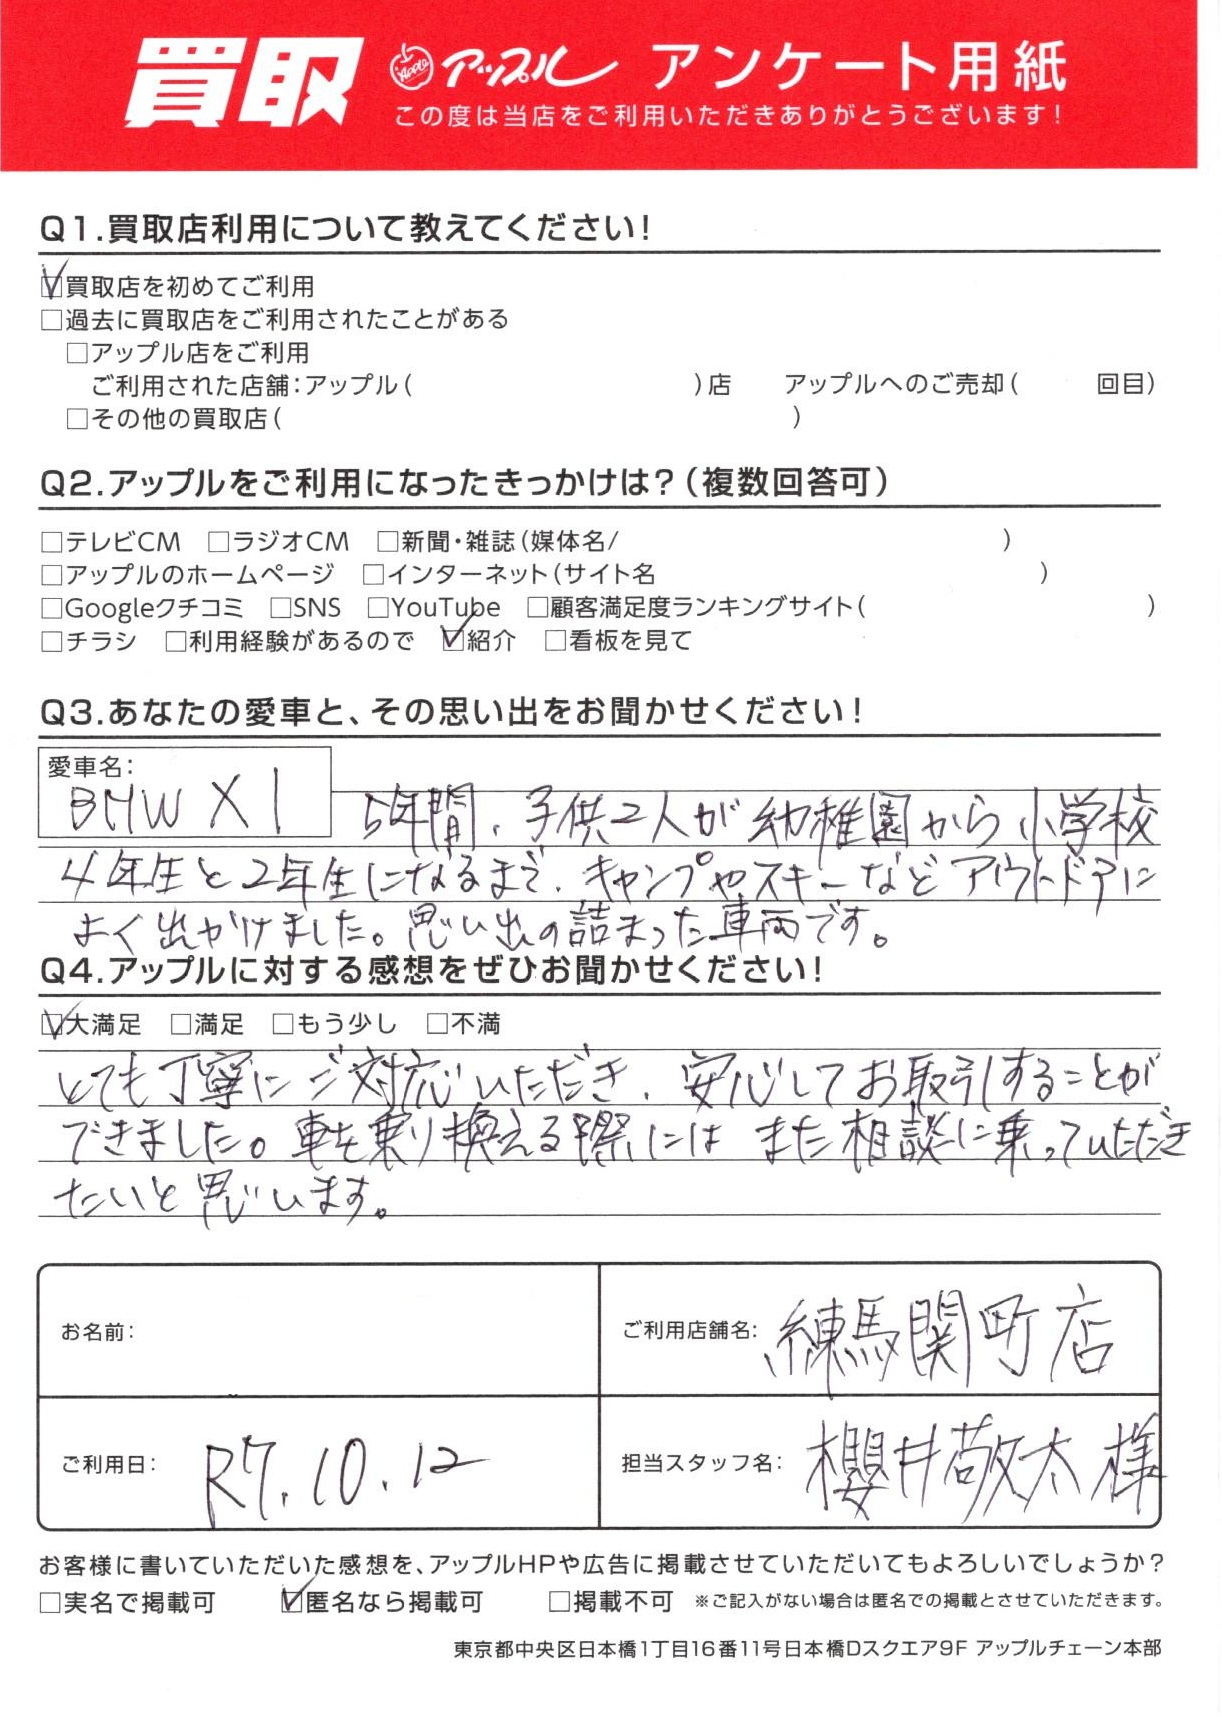 買取 Apple アップル アンケート用紙
この度は当店をご利用いただきありがとうございます!
Q1.買取店利用について教えてください!
☑買取店を初めてご利用
□過去に買取店をご利用されたことがある
□アップル店をご利用
ご利用された店舗:アップル( )店 アップルへのご売却( 回目)
□その他の買取店( )
Q2.アップルをご利用になったきっかけは?(複数回答可)
□テレビCM □ラジオCM □新聞・雑誌(媒体名/ )
□アップルのホームページ □インターネット(サイト名 )
□Googleクチコミ □SNS □YouTube □顧客満足度ランキングサイト( )
□チラシ □利用経験があるので ☑紹介 □看板を見て
Q3.あなたの愛車と、その思い出をお聞かせください!
愛車名:
BMW X1 5年間、子供2人が幼稚園から小学校
4年生と2年生になるまで、キャンプやスキーなどアウトドアに
よく出かけました。思い出の詰まった車両です。
Q4.アップルに対する感想をぜひお聞かせください!
☑大満足 □満足 □もう少し □不満
とても丁寧にご対応いただき、安心してお取引することが
できました。車を乗り換える際にはまた相談に乗っていただき
たいと思います。
お名前: ご利用店舗名: 練馬関町店
ご利用日: R7.10.12 担当スタッフ名: 櫻井敬太様
お客様に書いていただいた感想を、アップルHPや広告に掲載させていただいてもよろしいでしょうか?
□実名で掲載可 ☑匿名なら掲載可 □掲載不可 ※ご記入がない場合は匿名での掲載とさせていただきます。
東京都中央区日本橋1丁目16番11号日本橋Dスクエア9F アップルチェーン本部